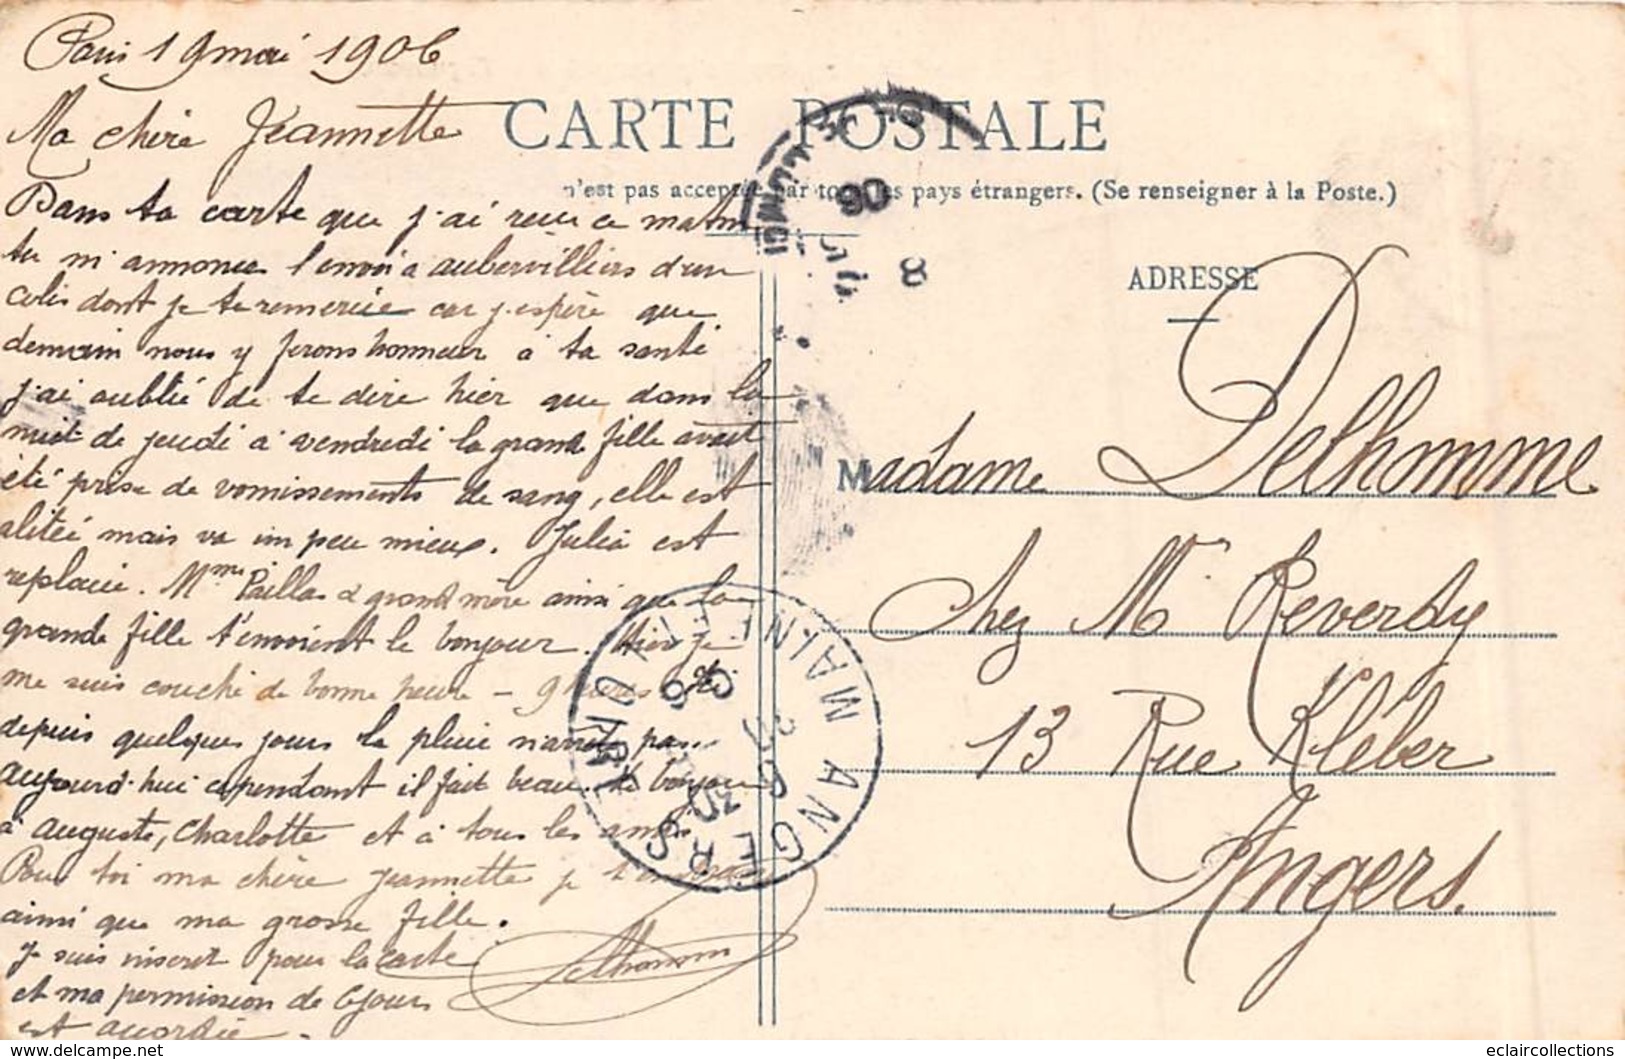 Paris 19 mai 1906
Ma chère Jeannette
Dans ta carte que j'ai reçu ce matin
tu m'annonces l'envoi a aubervilliers d'un
colis dont je te remercie car j'espère que
demain nous y ferons honneur à ta santé
j'ai oublié de te dire hier que dans la
nuit de jeudi à vendredi la grande fille avait
été prise de vomissements de sang, elle est
alitée mais va un peu mieux. Julia est
replacée. Mme Paillas & grand mère ainsi que la
grande fille t'envoient le bonjour. Hier je
me suis couché de bonne heure - 9 heures. Ici
depuis quelques jours la pluie n'arrête pas
aujourd'hui cependant il fait beau. Le bonjour
à auguste, Charlotte et à tous les amis
Pour toi ma chère Jeannette je t'embrasse
ainsi que ma grosse fille.
Delhomme
je suis inscrit pour la carte
et ma permission de 6 jours
est accordée.
CARTE POSTALE
n'est pas acceptée par tous les pays étrangers. (Se renseigner à la Poste.)
ADRESSE
Madame Delhomme
chez Mr Reverdy
13 Rue Kléber
Angers.
ANGERS
MAINE
06
8
eclaircollections
www.delcampe.net